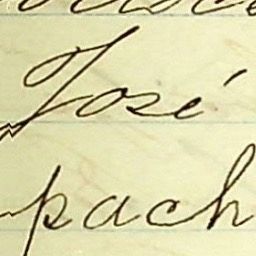 José
pach